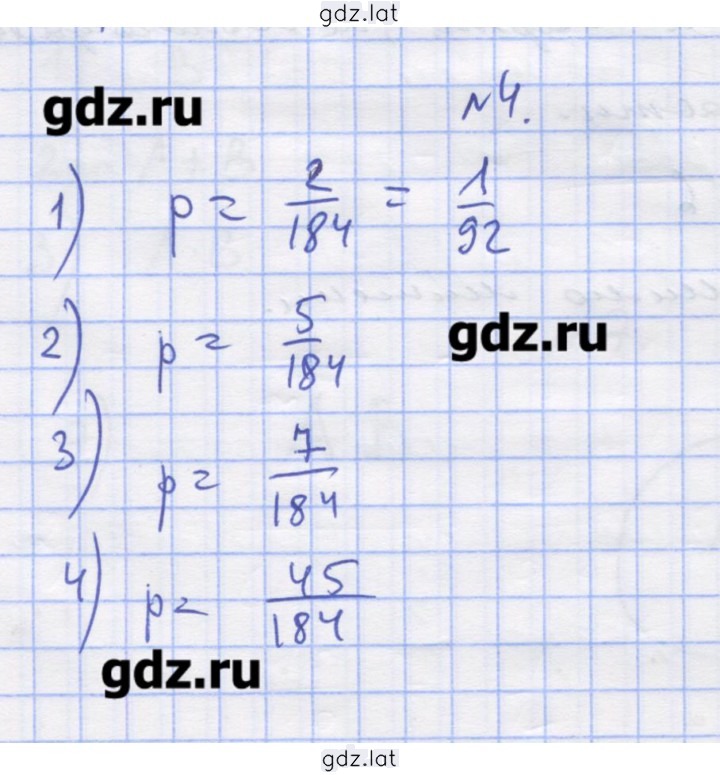 gdz.lat
gdz.ru
№4.
1) p = 2/184 = 1/92
2) p = 5/184
gdz.ru
3) p = 7/184
4) p = 45/184
gdz.ru
gdz.lat